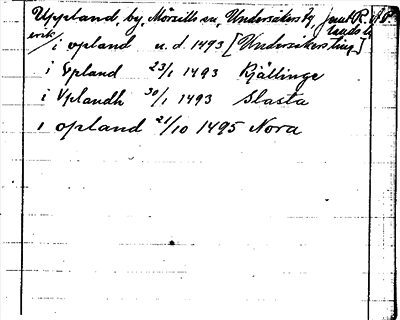 Uppland, by, Mörsills sn, Undersåkers tg, Jmtl R. AP
i opland u.d. 1493 [Undersåkers ting]
i Vpland 23/1 1493 Kjällinge
i Vplandh 30/1 1493 Slasta
i opland 21/10 1495 Nora